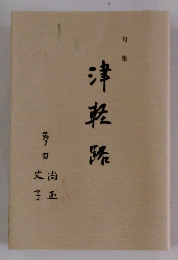 句集
津軽路
多田
尚玉
文子